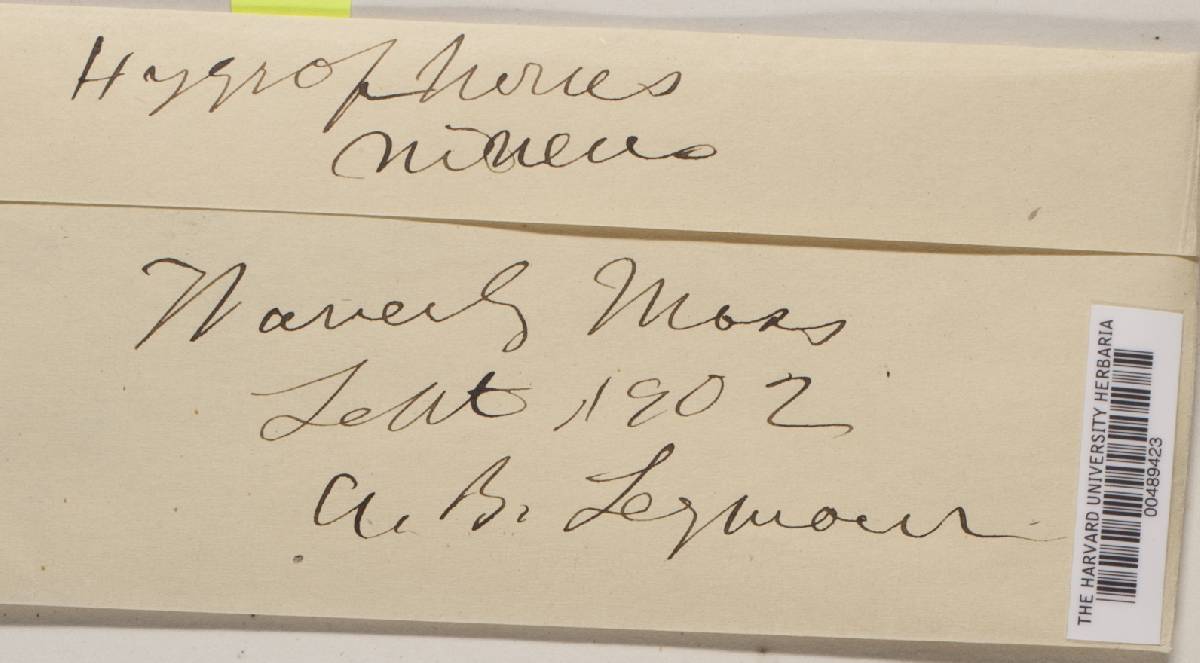 Hygrophorus
niveus
Waverly Mass
Sept, 1902
A. B. Seymour
THE HARVARD UNIVERSITY HERBARIA
00489423